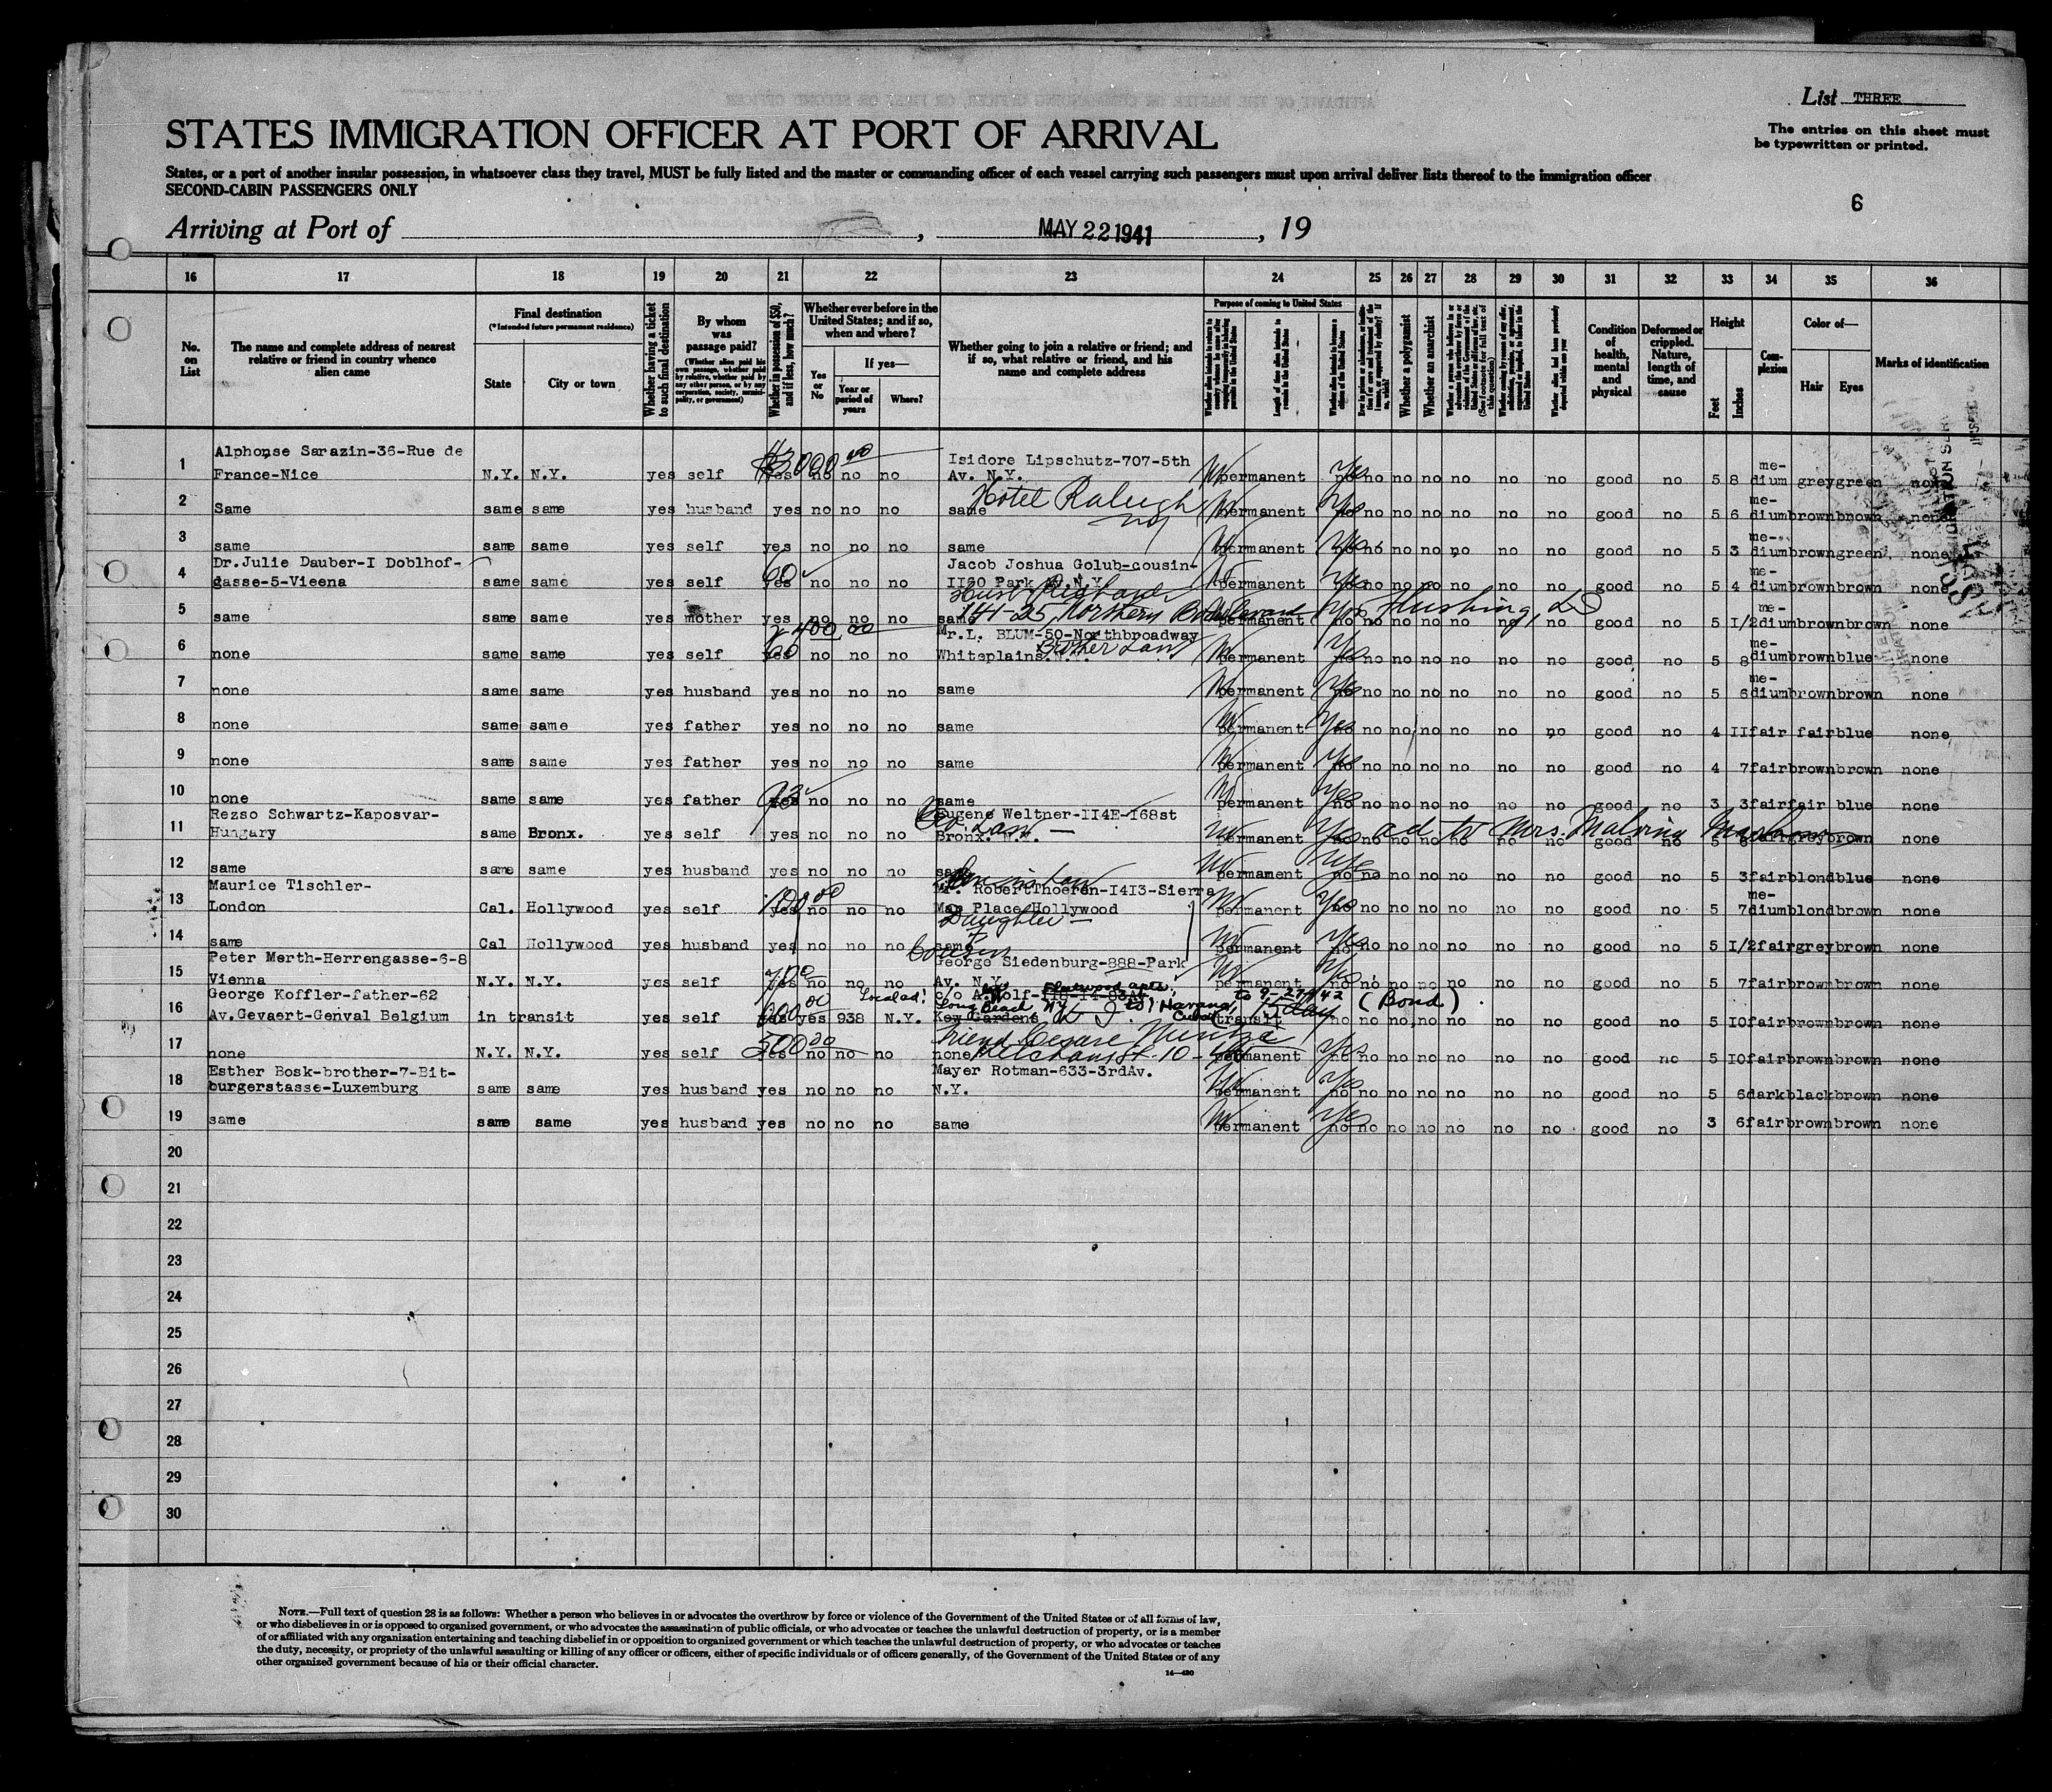 List THREE
STATES IMMIGRATION OFFICER AT PORT OF ARRIVAL
The entries on this sheet must
be typewritten or printed.
States, or a port of another insular possession, in whatsoever class they travel, MUST be fully listed and the master or commanding officer of each vessel carrying such passengers must upon arrival deliver lists thereof to the immigration officer
SECOND-CABIN PASSENGERS ONLY
6
Arriving at Port of , MAY 22 1941 , 19
16 17 18 19 20 21 22 23 24 25 26 27 28 29 30 31 32 33 34 35 36
No. on List
The name and complete address of nearest relative or friend in country whence alien came
Final destination
(*Intended future permanent residence)
State
City or town
Whether having a ticket to such final destination
By whom was passage paid?
(Whether alien paid his own passage, whether paid by relative, whether paid by any other person, or by any corporation, society, municipality, or government)
Whether in possession of $50, and if less, how much?
Whether ever before in the United States; and if so, when and where?
Yes or No
If yes—
Year or period of years
Where?
Whether going to join a relative or friend; and if so, what relative or friend, and his name and complete address
Purpose of coming to United States
Length of time alien intends to remain in the United States
Whether a polygamist
Whether an anarchist
Condition of health, mental and physical
Deformed or crippled. Nature, length of time, and cause
Height
Feet
Inches
Complexion
Color of—
Hair
Eyes
Marks of identification
1 Alphonse Sarazin-36-Rue de
France-Nice N.Y. N.Y. yes self yes $3000 00 no no no Isidore Lipschutz-707-5th
Av. N.Y. permanent no Yes no no no no no no good no 5 8 medium grey green none
Hotel Raleigh
NY
2 Same same same yes husband yes no no no same permanent no Yes no no no no no no good no 5 6 medium brown brown none
3 same same same yes self yes no no no same permanent no Yes no no no no no no good no 5 3 medium brown green none
4 Dr.Julie Dauber-I Doblhof-
gasse-5-Vieena same same yes self yes 60 no no no Jacob Joshua Golub-cousin-
II80 Park Av.N.Y. permanent no Yes no no no no no no good no 5 4 medium brown brown none
141-25 Northern Boulevard Flushing, L
5 same same same yes mother yes no no no same permanent no Yes no no no no no no good no 5 I/2 medium brown brown none
6 none same same yes self yes 2400 00 60 no no no Mr.L. BLUM-50-Northbroadway
Whiteplains.N.Y. Brother Law permanent no Yes no no no no no no good no 5 8 medium brown blue none
7 none same same yes husband yes no no no same permanent no Yes no no no no no no good no 5 6 medium brown brown none
8 none same same yes father yes no no no same permanent no Yes no no no no no no good no 4 II fair fair blue none
9 none same same yes father yes no no no same permanent no Yes no no no no no no good no 4 7 fair brown brown none
10 none same same yes father yes no no no same permanent no Yes no no no no no no good no 3 3 fair fair blue none
11 Rezso Schwartz-Kaposvar-
Hungary same Bronx. yes self yes no no no Eugene Weltner-II4E-I68st
Bronx. N.Y. permanent no Yes no no no no no no good no 5 6 fair grey brown none
ad to Mrs. Malvina
12 same same same yes husband yes no no no same permanent no Yes no no no no no no good no 5 3 fair blond blue none
13 Maurice Tischler-
London Cal. Hollywood yes self yes 100 00 no no no Son in Law
Mr. RobertThoeren-I4I3-Sierra
Mar Place Hollywood permanent no Yes no no no no no no good no 5 7 medium blond brown none
Daughter
14 same Cal Hollywood yes husband yes no no no same permanent no Yes no no no no no no good no 5 I/2 fair grey brown none
15 Peter Merth-Herrengasse-6-8
Vienna N.Y. N.Y. yes self yes no no no Cousin
George Siedenburg-888-Park
Av. N.Y. permanent no Yes no no no no no no good no 5 7 fair brown brown none
16 George Koffler-father-62
Av.Gevaert-Genval Belgium in transit yes self yes yes 938 N.Y. Local ad: Fleetwood apts.
c/o A.Wolf-118-14-83Av.
Long Beach NY
Kew Gardens to Havana Cuba transit 15 day to 9-27-42 (Bond) no no no no no no good no 5 I0 fair brown brown none
17 none N.Y. N.Y. yes self yes 500 00 no no no none friend Cesare
permanent no Yes no no no no no no good no 5 I0 fair brown brown none
18 Esther Bosk-brother-7-Bit-
burgerstasse-Luxemburg same same yes husband yes no no no Mayer Rotman-633-3rdAv.
N.Y. permanent no Yes no no no no no no good no 5 6 dark black brown none
19 same same same yes husband yes no no no same permanent no Yes no no no no no no good no 3 6 fair brown brown none
20
21
22
23
24
25
26
27
28
29
30
NOTE.—Full text of question 28 is as follows: Whether a person who believes in or advocates the overthrow by force or violence of the Government of the United States or of all forms of law,
or who disbelieves in or is opposed to organized government, or who advocates the assassination of public officials, or who advocates or teaches the unlawful destruction of property, or is a member
of or affiliated with any organization entertaining and teaching disbelief in or opposition to organized government or which teaches the unlawful destruction of property, or who advocates or teaches
the duty, necessity, or propriety of the unlawful assaulting or killing of any officer or officers, either of specific individuals or of officers generally, of the Government of the United States or of any
other organized government because of his or their official character.
14—430